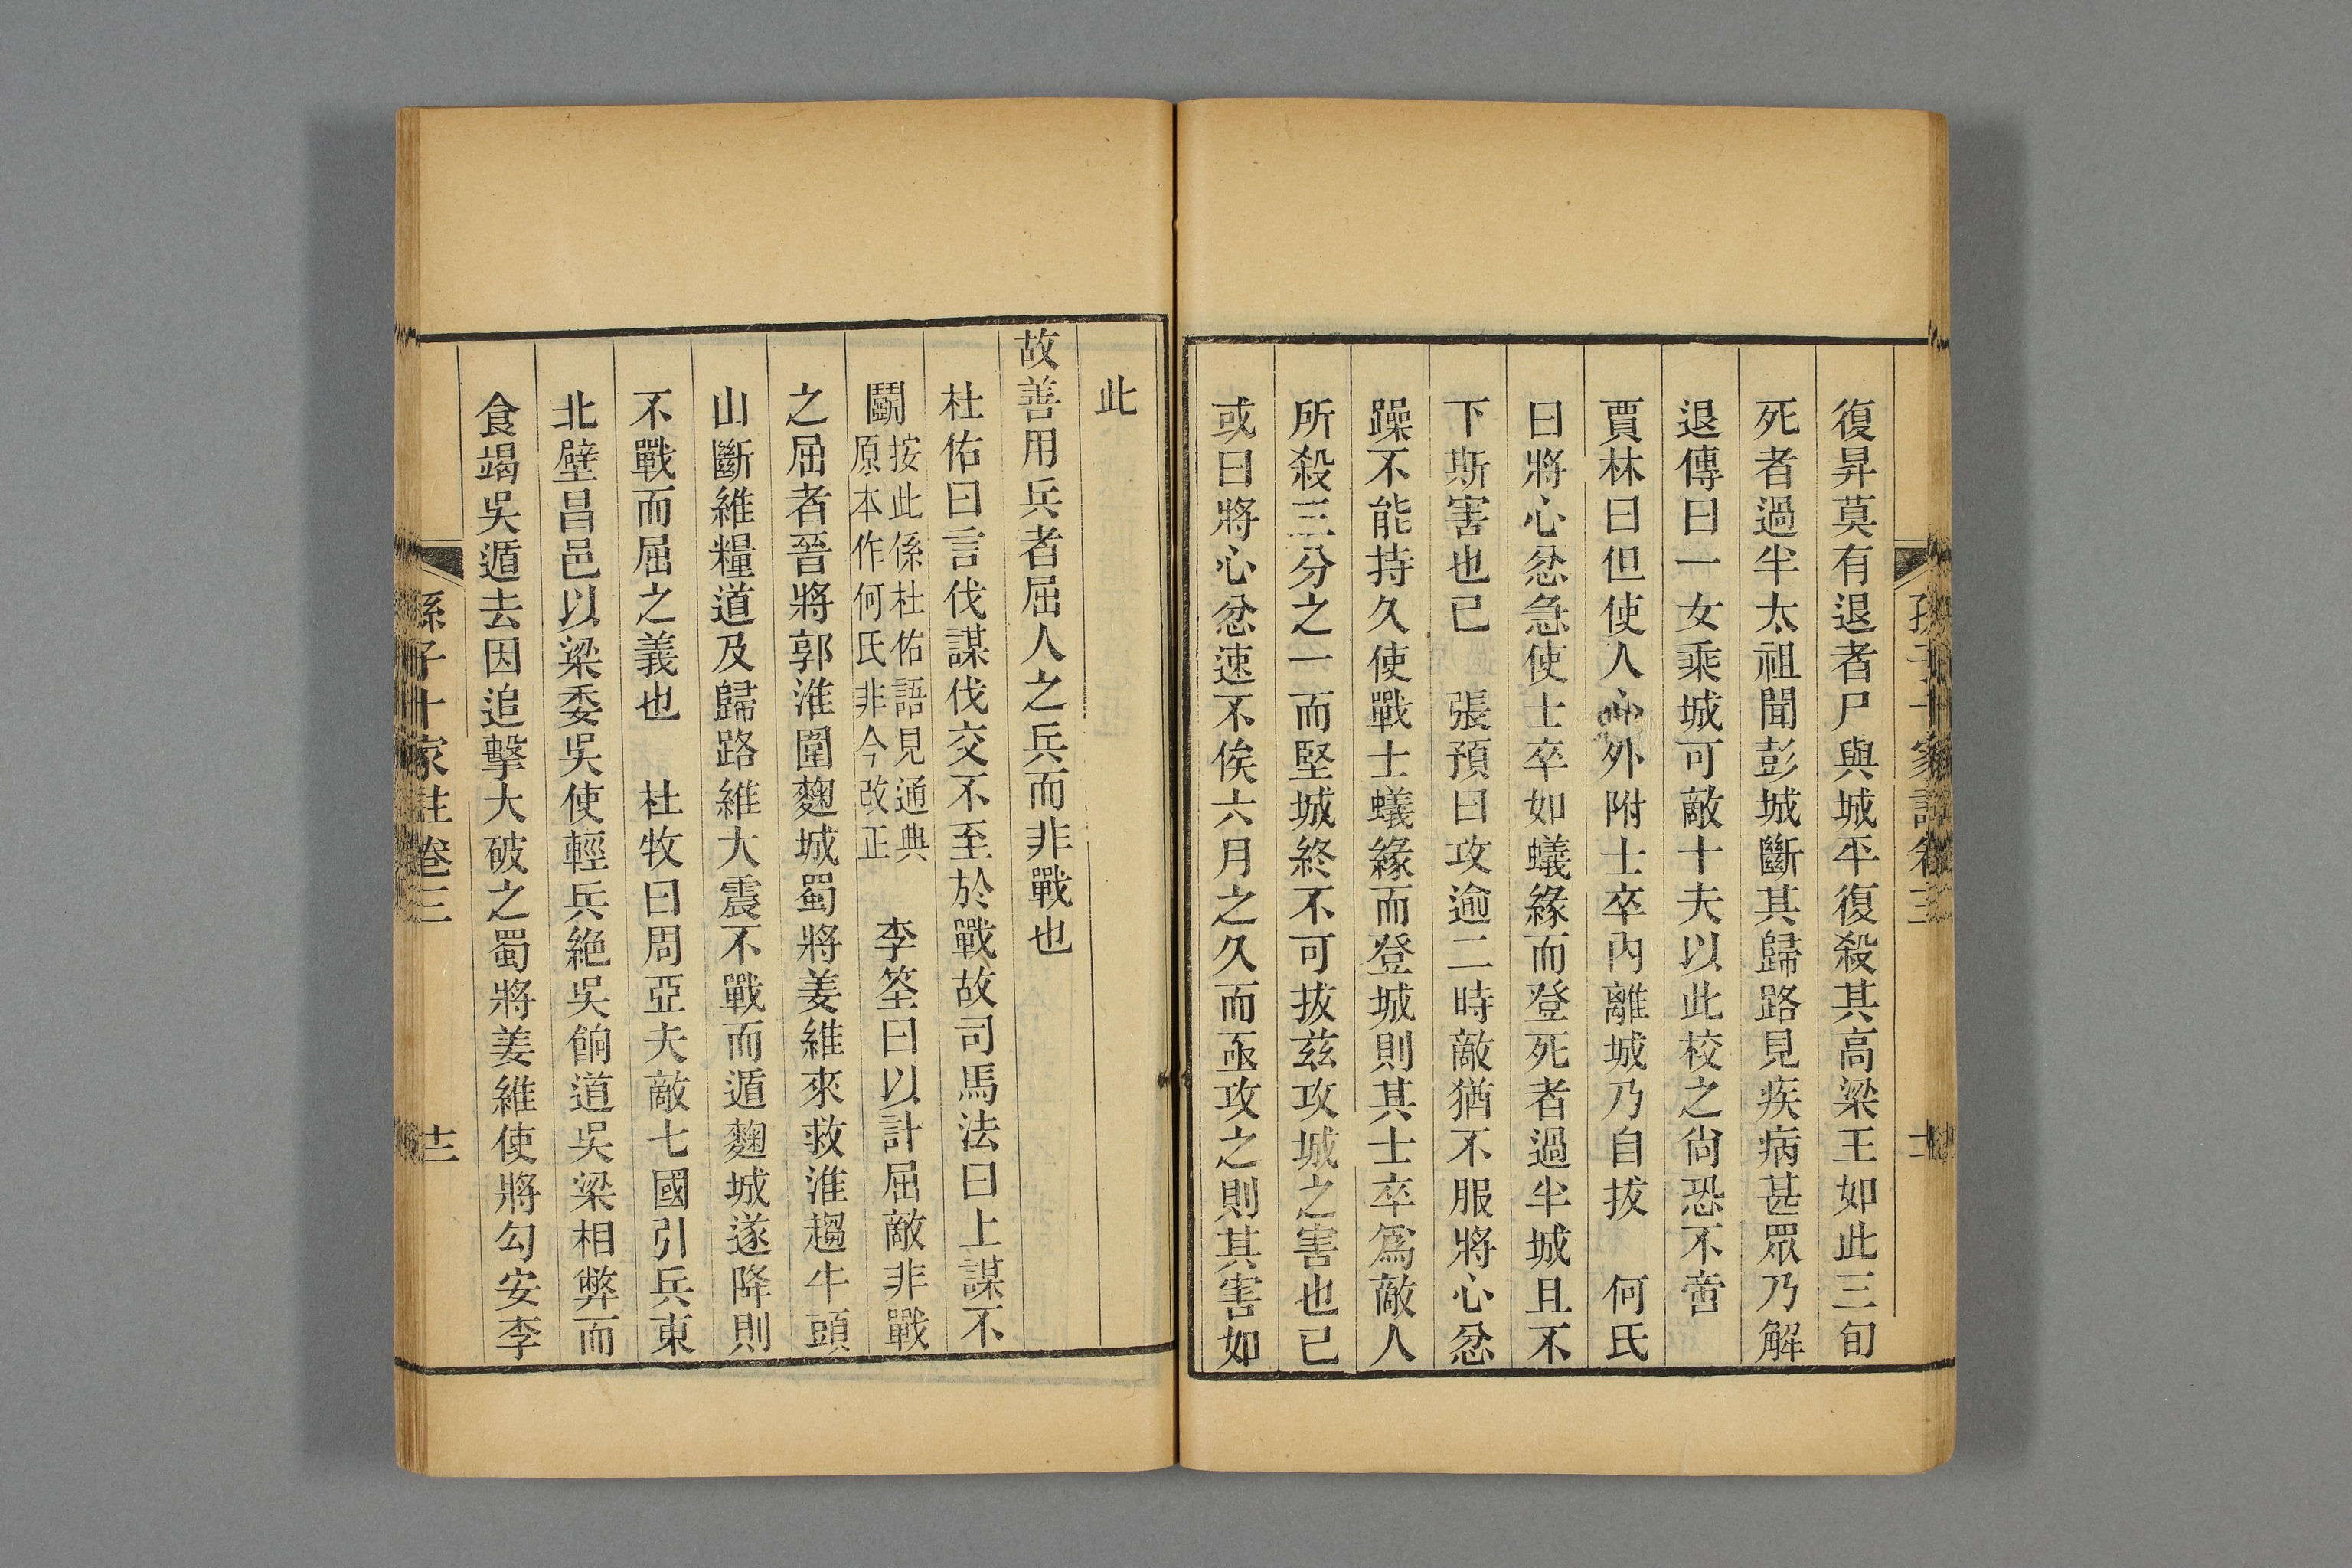 復昇莫有退者尸與城平復殺其高梁王如此三旬
死者過半太祖聞彭城斷其歸路見疾病甚眾乃解
退傳曰一女乘城可敵十夫以此校之尙恐不啻
賈林曰但使人心外附士卒內離城乃自拔　何氏
曰將心忿急使士卒如蟻緣而登死者過半城且不
下斯害也已　張預曰攻逾二時敵猶不服將心忿
躁不能持久使戰士蟻緣而登城則其士卒爲敵人
所殺三分之一而堅城終不可拔茲攻城之害也已
或曰將心忿速不俟六月之久而亟攻之則其害如
此
故善用兵者屈人之兵而非戰也
杜佑曰言伐謀伐交不至於戰故司馬法曰上謀不
鬭按此係杜佑語見通典原本作何氏非今改正　李筌曰以計屈敵非戰
之屈者晉將郭淮圍麴城蜀將姜維來救淮趨牛頭
山斷維糧道及歸路維大震不戰而遁麴城遂降則
不戰而屈之義也　杜牧曰周亞夫敵七國引兵東
北壁昌邑以梁委吳使輕兵絶吳餉道吳梁相弊而
食竭吳遁去因追擊大破之蜀將姜維使將勾安李
孫子十家註卷三
十三